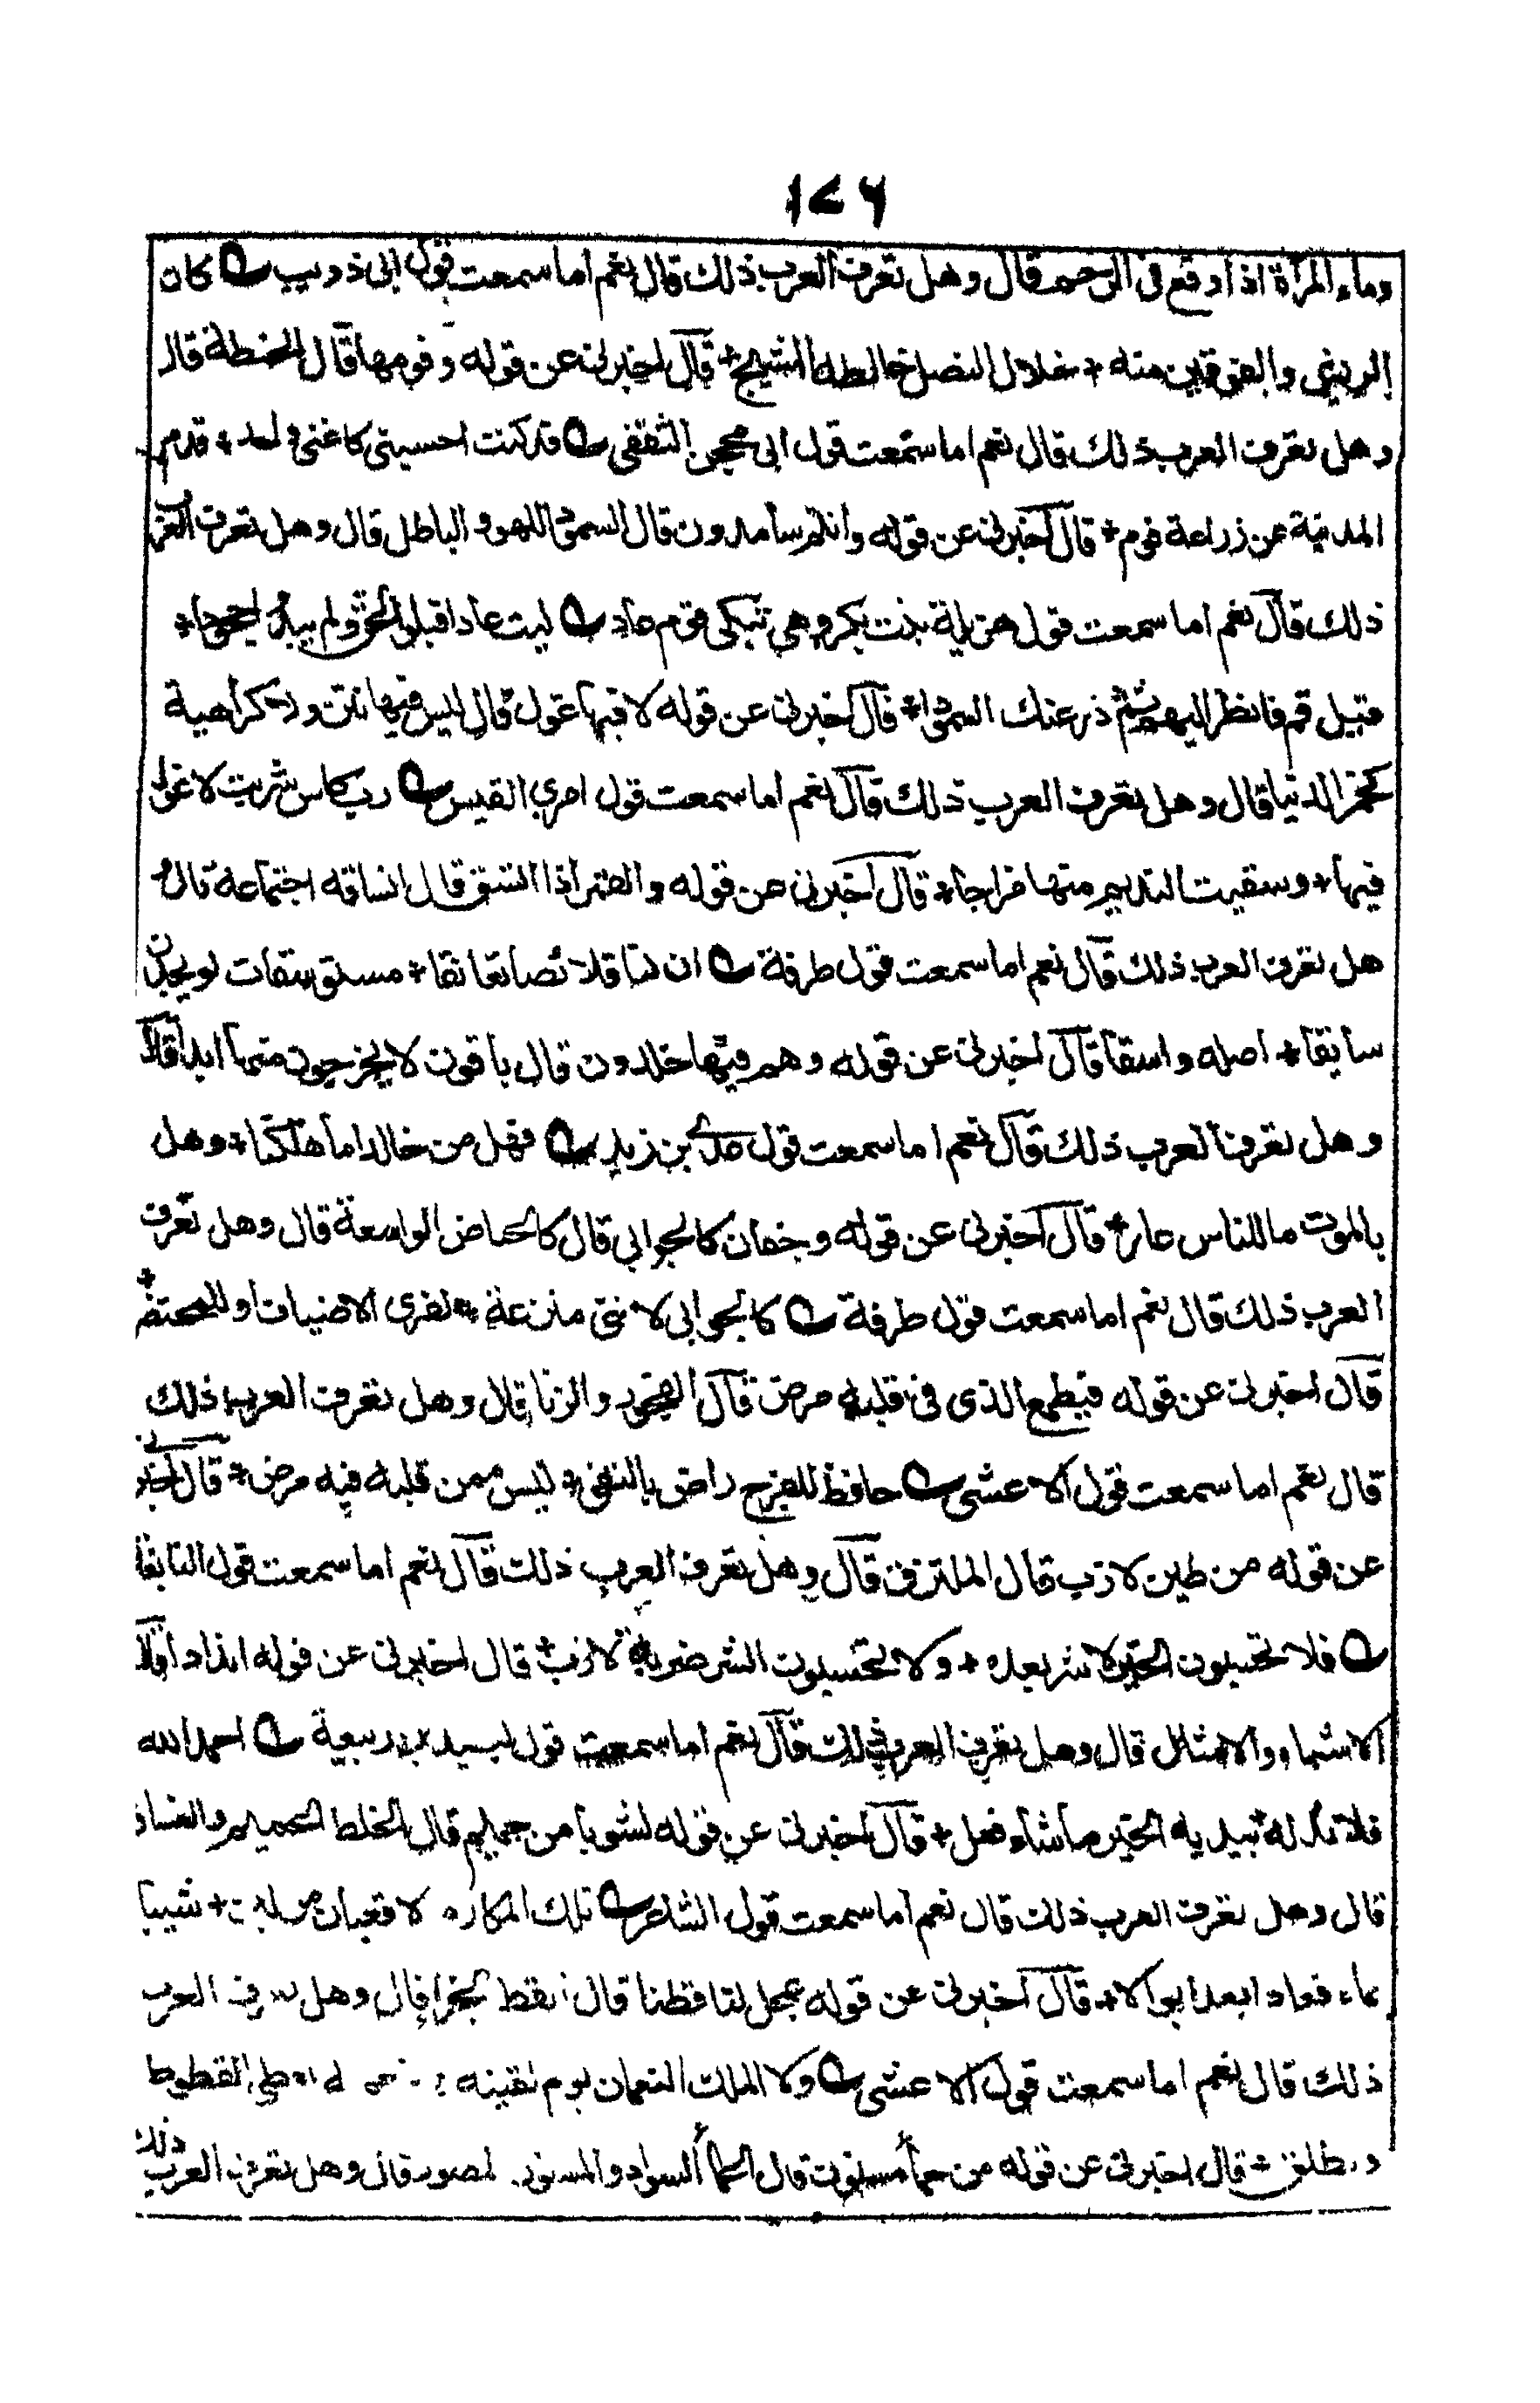 ١٧٦
وماء المرأة اذا وقع فى الرحم قال وهل تعرف العرب ذلك قال نعم اما سمعت قول ابى ذويب كان
الريش والفوقين منه + خلال النصل خالطه المشيج + قال اخبرنى عن قوله وفومها قال الحنطة قال
وهل تعرف العرب ذلك قال نعم اما سمعت قول ابى محجن الثقفى قد كنت احسبنى كاغنى واحد + قدم
المدينة عن زراعة فوم + قال اخبرنى عن قوله وانتم سامدون قال السمود اللهو والباطل قال وهل تعرف العرب
ذلك قال نعم اما سمعت قول هزيلة بنت بكر وهى تبكى قوم عاد ليت عادا قبلوا الحق ولم يبدوا جحودا +
قيل قم فانظر اليهم ثم ذر عنك السمودا + قال اخبرنى عن قوله لا فيها غول قال ليس فيها نتن ولا كراهية
كخمر الدنيا قال وهل تعرف العرب ذلك قال نعم اما سمعت قول امرى القيس رب كاس شربت لا غول
فيها + وسقيت النديم منها مزاجا + قال اخبرنى عن قوله والقمر اذا اتسق قال اتساقه اجتماعه قال و
هل تعرف العرب ذلك قال نعم اما سمعت قول طرفة ان لنا قلائصا نقانقا + مستوسقات لو يجدن
سائقا + اصله واسقا قال اخبرنى عن قوله وهم فيها خالدون قال باقون لا يخرجون منها ابدا قال
وهل تعرف العرب ذلك قال نعم اما سمعت قول عدى بن زيد فهل من خالد اما هلكنا + وهل
بالموت ما للناس عار + قال اخبرنى عن قوله وجفان كالجوابى قال كالحياض الواسعة قال وهل تعرف
العرب ذلك قال نعم اما سمعت قول طرفة كالجوابى لا تنى مترعة + لقرى الاضياف او للمحتضر +
قال اخبرنى عن قوله فيطمع الذى فى قلبه مرض قال الفجور والزنا قال وهل تعرف العرب ذلك
قال نعم اما سمعت قول الاعشى حافظ للفرج راض بالتقى + ليس ممن قلبه فيه مرض + قال اخبرنى
عن قوله من طين لازب قال الملتزق قال وهل تعرف العرب ذلك قال نعم اما سمعت قول النابغة
فلا تحسبون الخير لا شر بعده + ولا تحسبون الشر ضربة لازب + قال اخبرنى عن قوله اندادا قال
الاشباه والامثال قال وهل تعرف العرب ذلك قال نعم اما سمعت قول لبيد بن ربيعة احمد الله
فلا ند له + بيديه الخير ما شاء فعل + قال اخبرنى عن قوله لشوبا من حميم قال الخلط الحميم والغساق
قال وهل تعرف العرب ذلك قال نعم اما سمعت قول الشاعر تلك المكارم لا قعبان من لبن + شيبا
بماء فعادا بعد ابوالا + قال اخبرنى عن قوله عجل لنا قطنا قال القط الجزا قال وهل تعرف العرب
ذلك قال نعم اما سمعت قول الاعشى ولا الملك النعمان يوم لقيته القطوط
ويطلق + قال اخبرنى عن قوله من حمأ مسنون قال الحمأ السواد والمسنون المصور قال وهل تعرف العرب ذلك